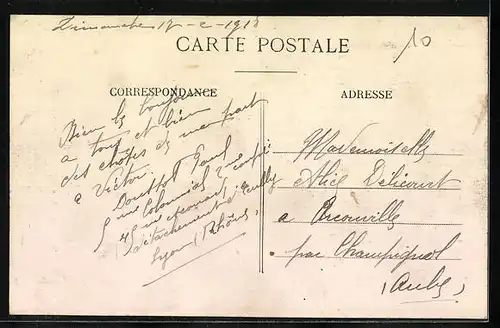 Dimanche 17-2-1918
CARTE POSTALE
10
CORRESPONDANCE
Bien le bonjour
a tous et bien
des choses de ma part
a Victor.
Paul
5 me Colonial 2 me Cie
détachement d'Ecully
Lyon (Rhône)
ADRESSE
Mademoiselle
Alice Délicourt
a Arconville
par Champignol
(Aube)